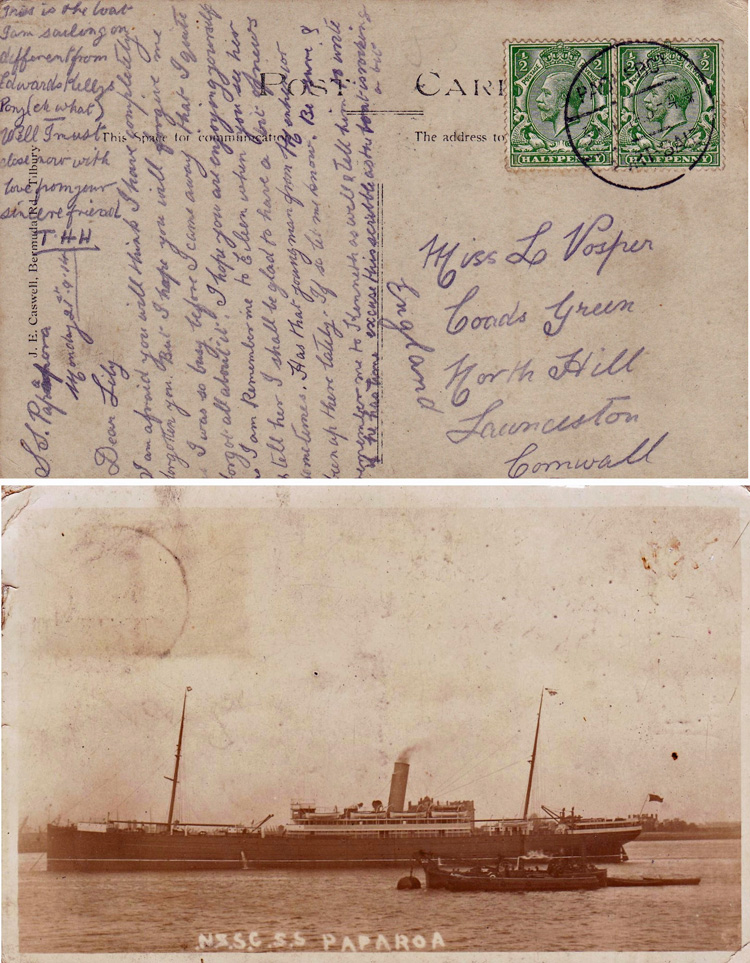 POST CAR
This Space for communication
The address to
J. E. Caswell, Bermuda Rd., Tilbury
HALFPENNY HALFPENNY
PAQUEBOT
S.S. Paparoa
Monday 21st 9.14
Dear Lily
I am afraid you will think I have completely
forgotten you. But I hope you will forgive me
I was so busy before I came away that I quite
forgot all about it. I hope you are enjoying yourself
as I am. Remember me to Eileen when you see her
& tell her I shall be glad to have a bit of news
sometimes. Has that young man from
been up there lately. If so let me know. Be sure &
remember me to Kenneth as well & tell him to write
if he has time excuse this scribble as the boat is rocking
a bit
This is the boat
I am sailing on
different from
Edward Kellys
Pony (eh what)
Well I must
close now with
love from your
sincere friend
T H H
Miss L Vosper
Coads Green
North Hill
Launceston
Cornwall
England
N.Z.S.C. S.S PAPAROA